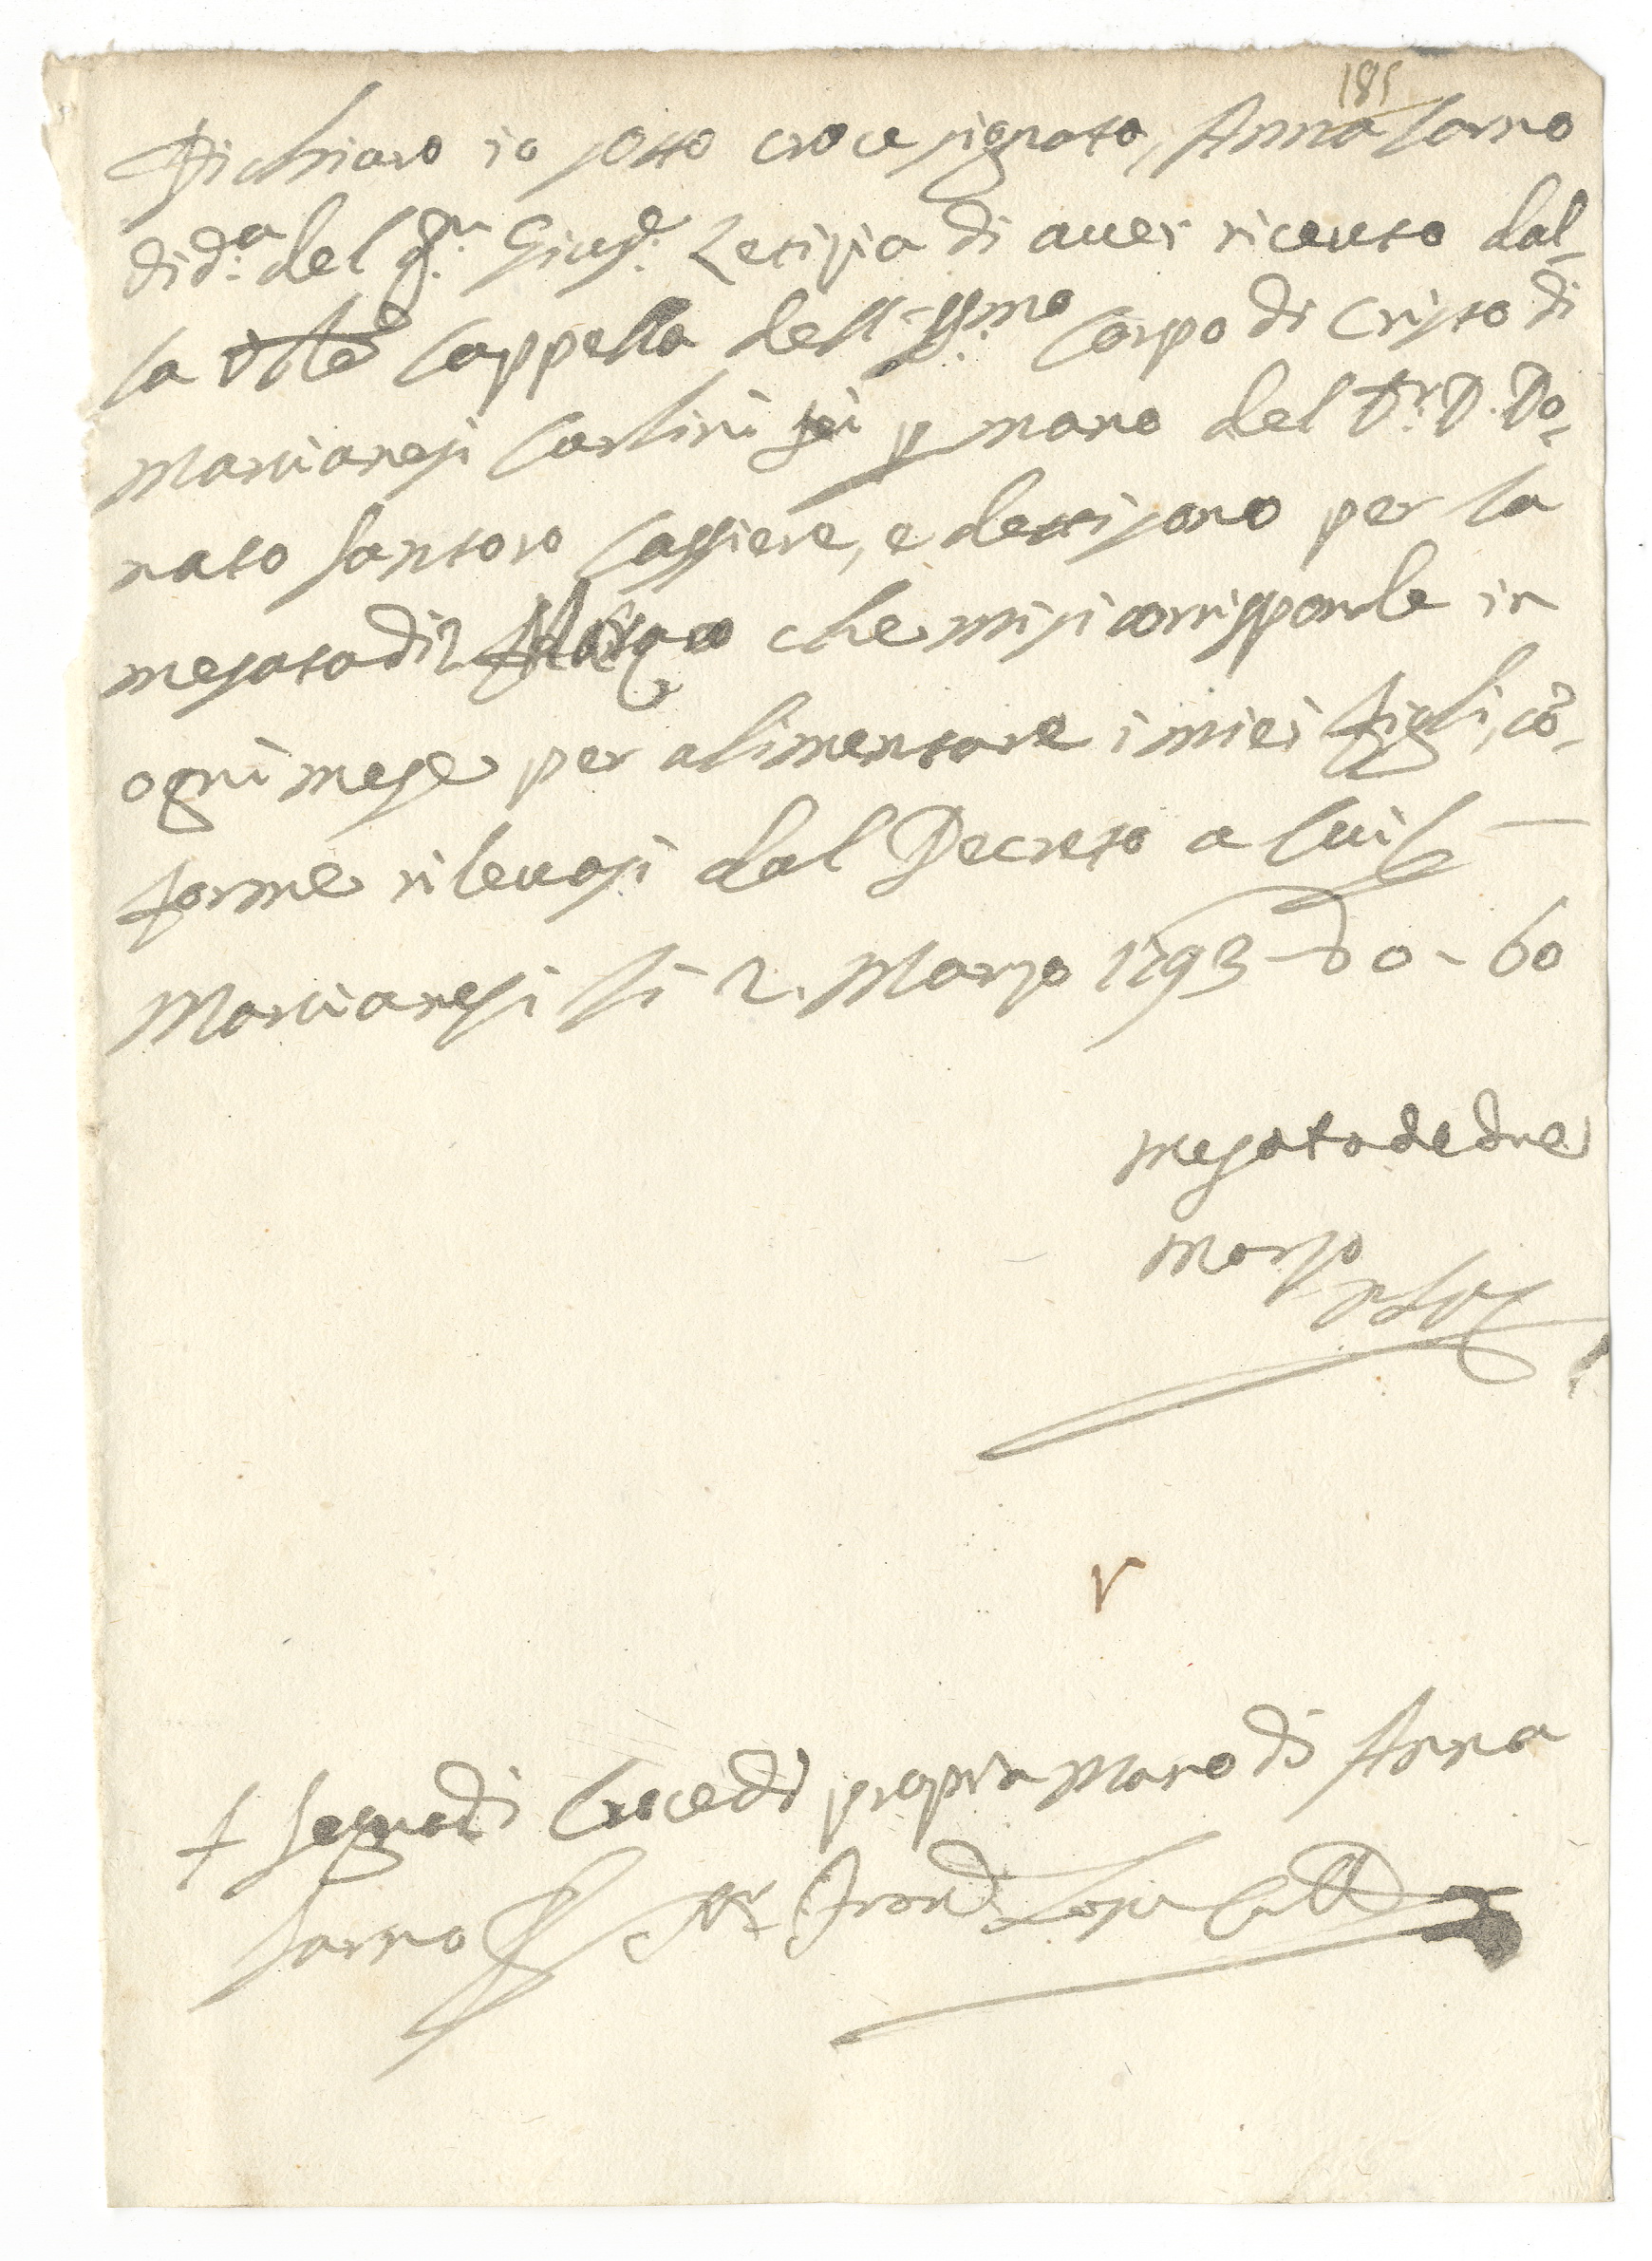 185
Dichiaro io sotto croce signata, Anna Sarno
vid:a del q:m Giusp:e Letizia di aver ricevuto dal-
la Cappella dell SS:mo Corpo di Cristo di
Marcianesi Carlini sei p mano del Dr D. Do-
nato Santoro Cassiere, e detti sono per la
mesata di Marzo che mi si corrisponde in
ogni mese per alimentare i miei figli, cō-
forme rilevasi dal Decreto a cui
Marcianesi li 2. Marzo 1793 - D 0 - 60
mesata de
Marzo
+ Segno di Croce di propria mano di Anna
Sarno